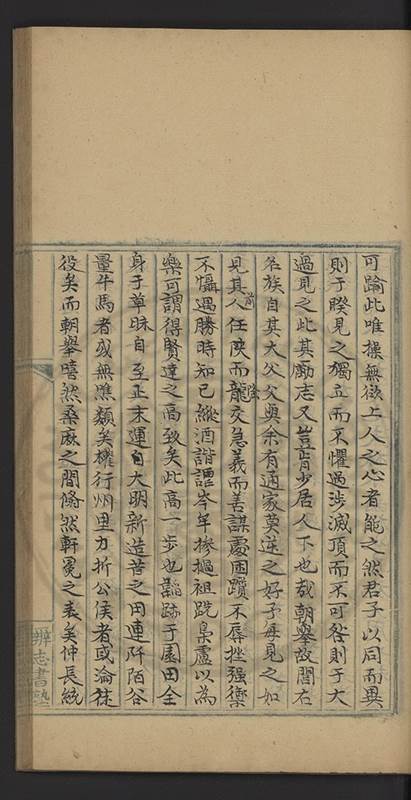 可踰此唯操無欲上人之心者能之然君子以同而異
則于睽見之獨立而不懼過涉滅頂而不可咎則于大
過見之此其勵志又豈肯少居人下也哉朝舉故閭右
名族自其大父父與余有通家莫逆之好予每見之如
見其人任俠而龍交急義而善謀處困躓不辱挫强禦
不懾遇勝時知己縱酒諧謔岑年摻摳祖跣梟盧以為
樂可謂得賢達之高致矣此高一步也韜跡于園田全
身于草昧自至正末運自大明新造昔之田連阡陌谷
量牛馬者或無噍類矣權行州里力折公侯者或淪徒
役矣而朝舉嘻然桑麻之間翛然軒冕之表矣仲長統
辨志書塾